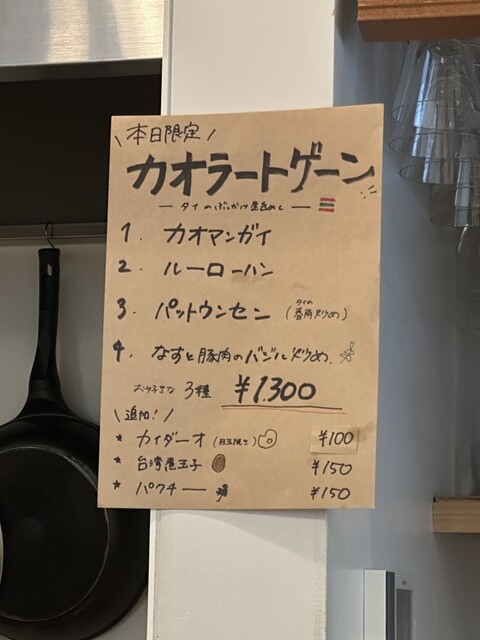 \ 本日限定 /
カオラートゲーン
— タイのぶっかけ飯 —
1. カオマンガイ
2. ルーローハン
3. パットウンセン (タイの春雨炒め)
4. なすと豚肉のバジル炒め
お好きな 3種 ¥1,300
\ 追加! /
* カイダーオ (目玉焼き) ¥100
* 台湾煮玉子 ¥150
* パクチー ¥150